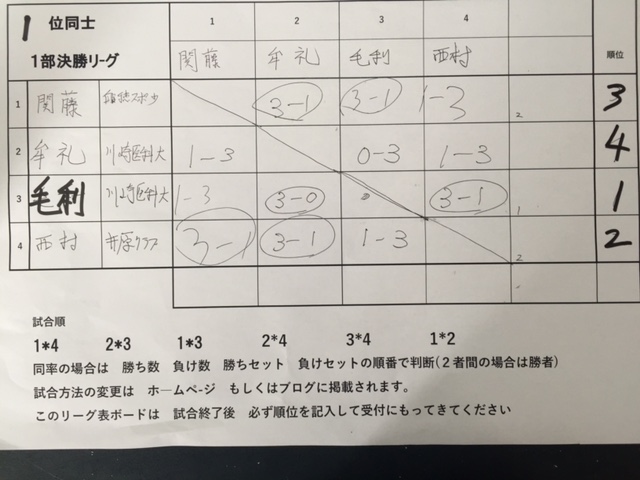 1 位同士 1 2 3 4
1部決勝リーグ 関藤 牟礼 毛利 西村 順位
1 関藤 3-1 3-1 1-3 2 3
2 牟礼 川崎医科大 1-3 0-3 1-3 4
3 毛利 川崎医科大 1-3 3-0 3-1 1 1
4 西村 井原クラブ 3-1 3-1 1-3 2 2
試合順
1*4 2*3 1*3 2*4 3*4 1*2
同率の場合は 勝ち数 負け数 勝ちセット 負けセットの順番で判断(2者間の場合は勝者)
試合方法の変更は ホームページ もしくはブログに掲載されます。
このリーグ表ボードは 試合終了後 必ず順位を記入して受付にもってきてください